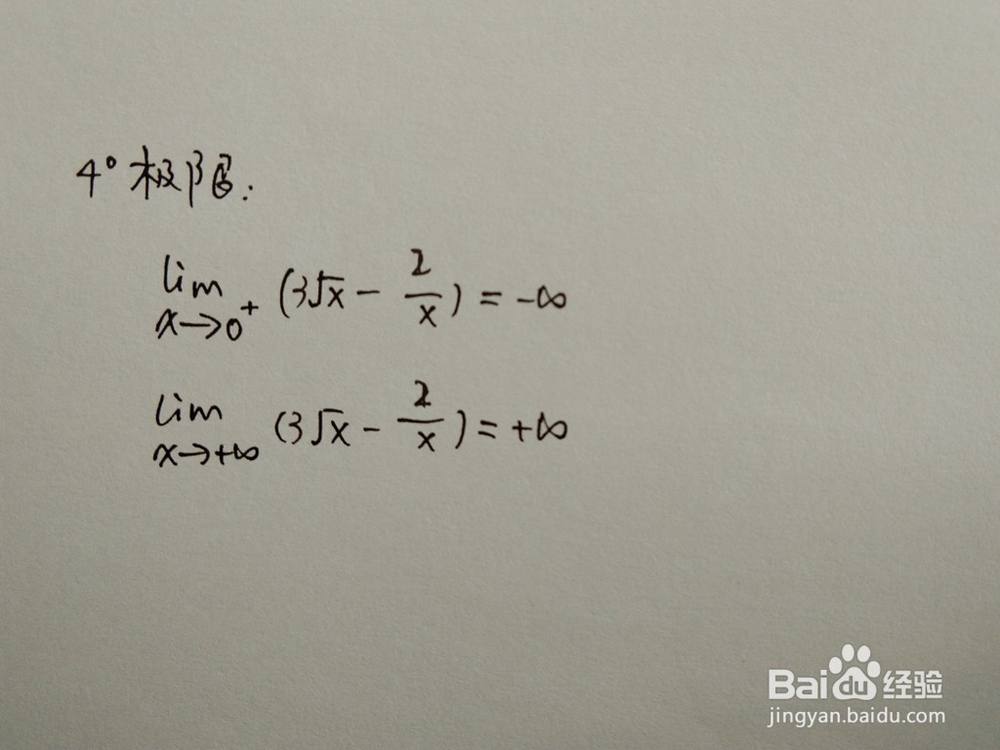 4° 极限:
lim x→0⁺ (3√x - 2/x) = -∞
lim x→+∞ (3√x - 2/x) = +∞
Baidu 经验
jingyan.baidu.com